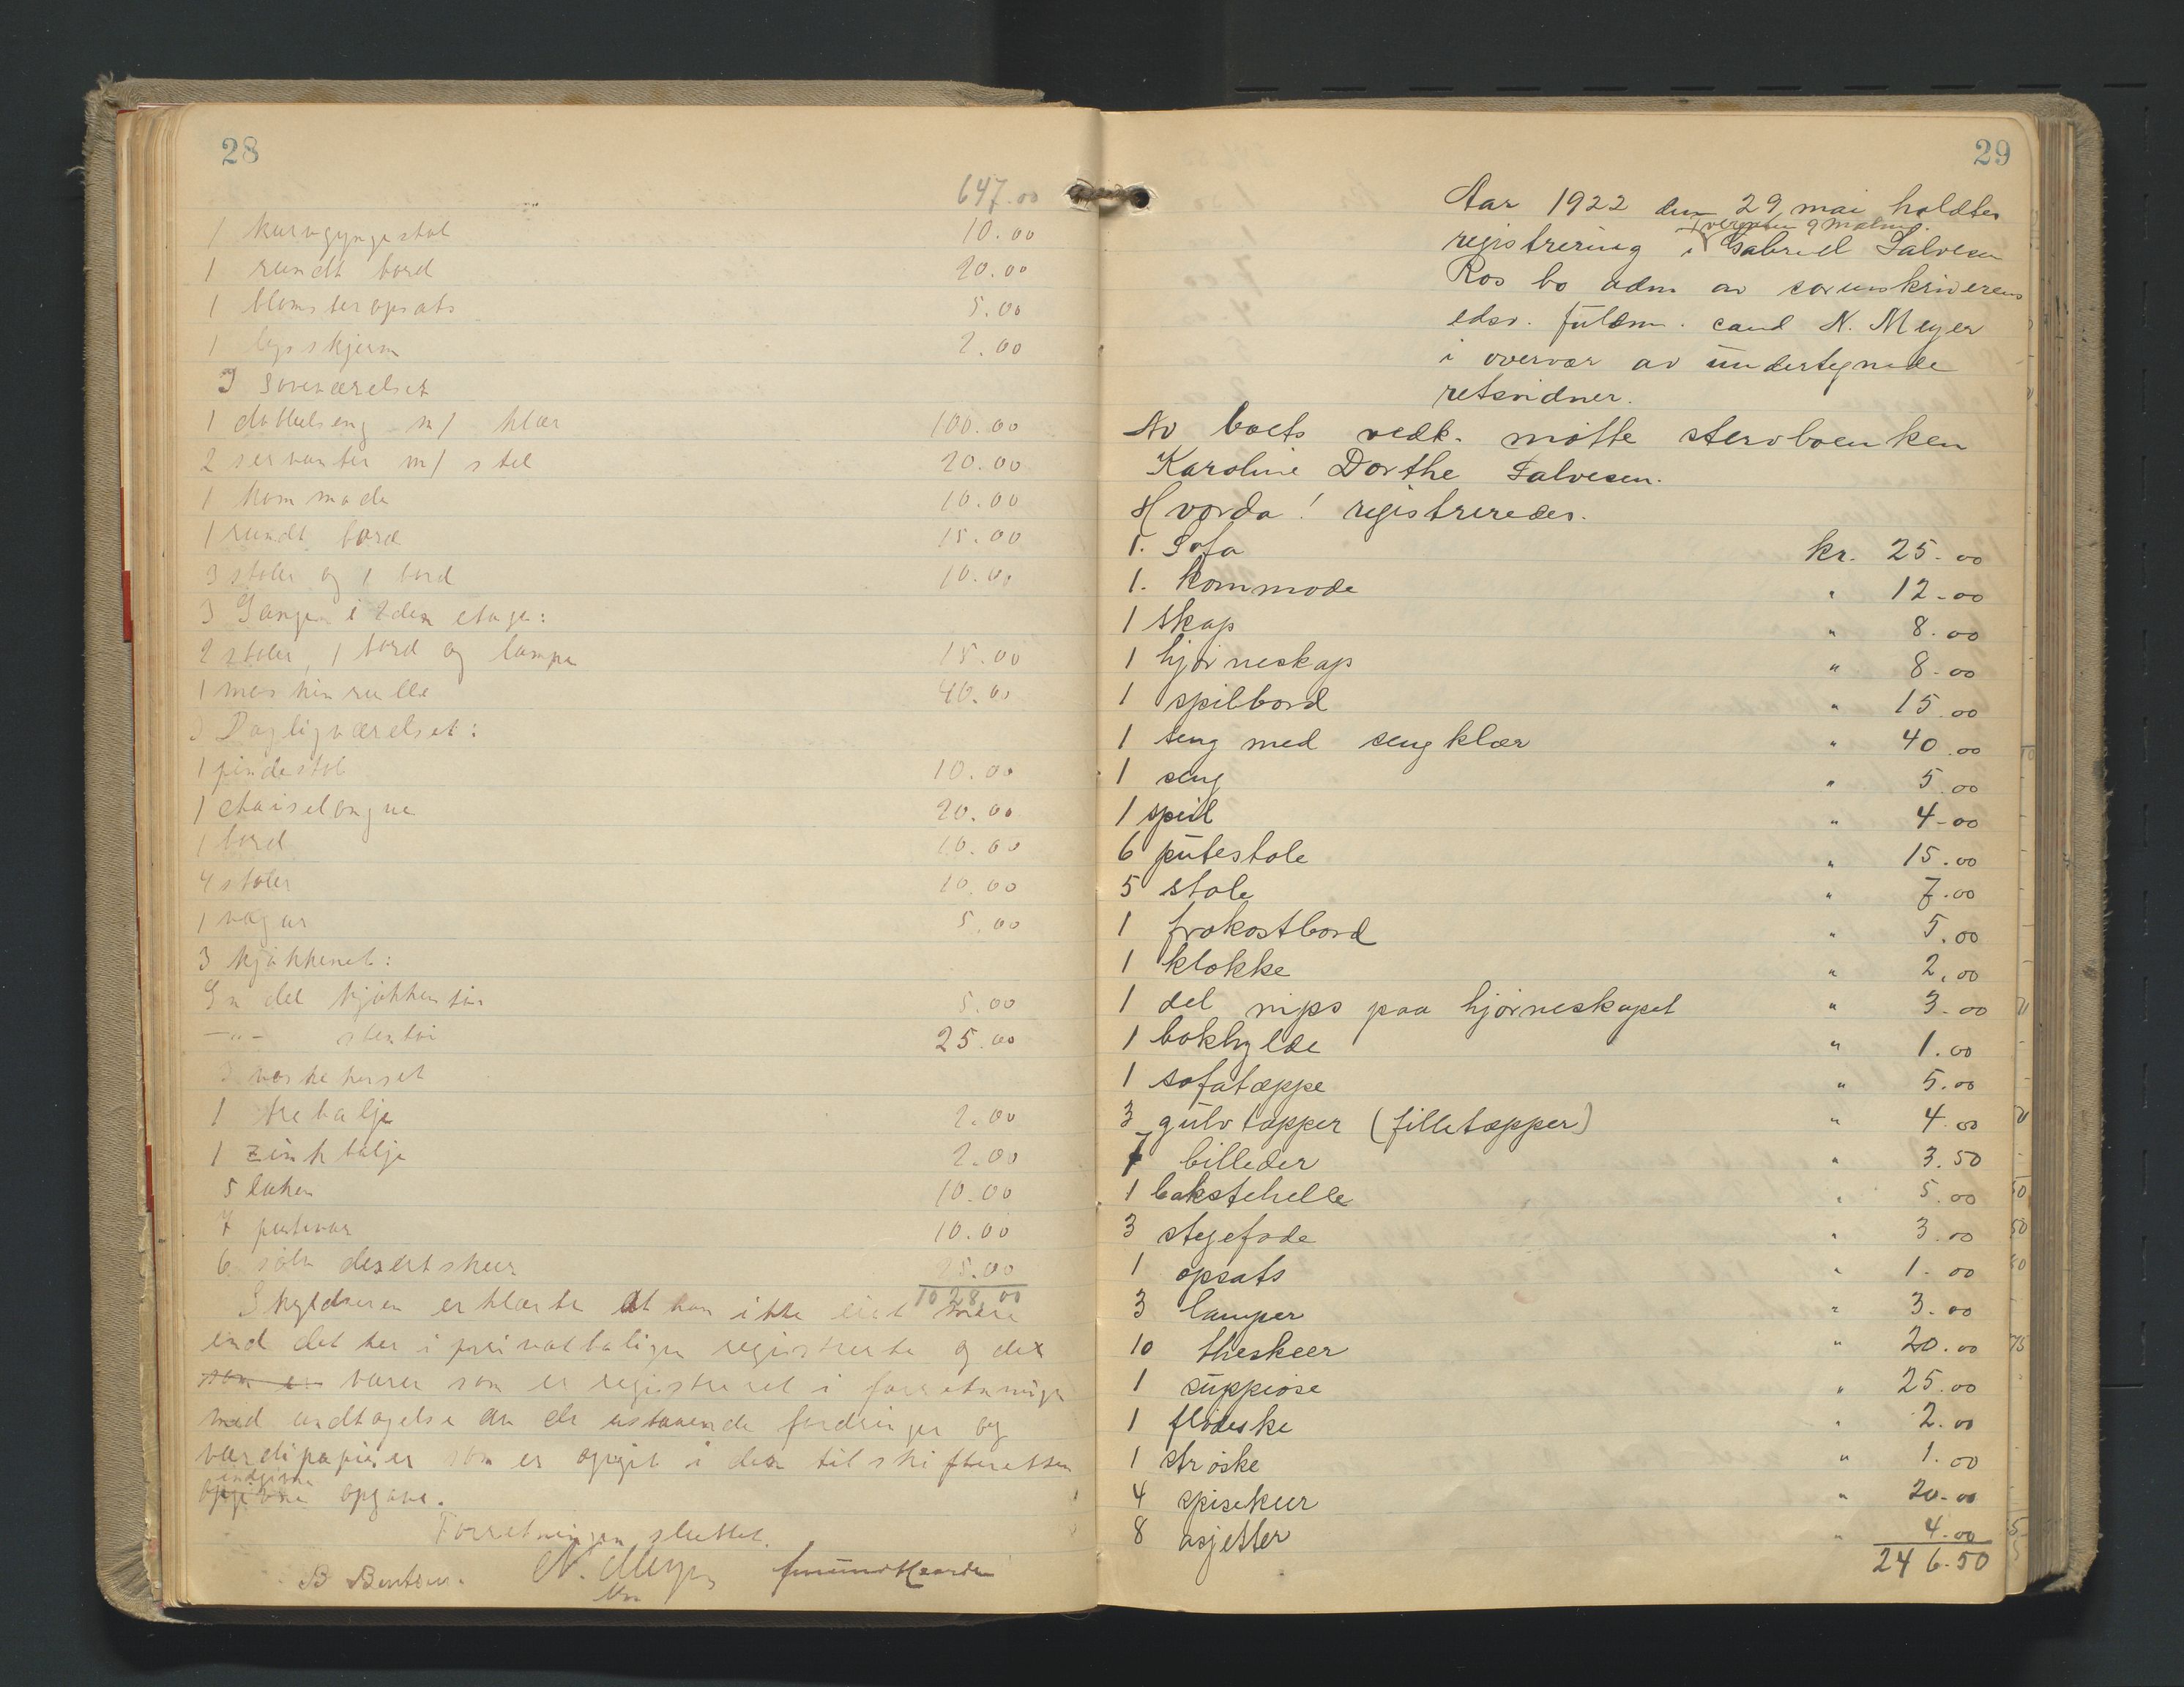 28
647.00
1 kurvgyngestol 10.00
1 rundt bord 20.00
1 blomsteropsats 5.00
1 lysskjerm 2.00
I Soveværelset
1 dobbelseng m/ klær 100.00
2 servanter m/ stel 20.00
1 kommode 10.00
1 rundt bord 15.00
3 stoler og 1 bord 10.00
I Gangen i 2den etage:
2 stoler, 1 bord og lampe 15.00
1 maskinrulle 40.00
I Dagligværelset:
1 pindestol 10.00
1 chaiselongue 20.00
1 bord 10.00
4 stoler 10.00
1 vægur 5.00
I kjøkkenet:
En del kjøkkentøi 5.00
-"- stentøi 25.00
I vaskehuset
1 trebalje 2.00
1 zinkbalje 2.00
5 laken 10.00
7 putevar 10.00
6 sølv desertskeer 25.00
1028.00
Skyldneren erklærte at han ikke eiet mere
end det her i privatboligen registrerte og det
som er varer som er registreret i forretningen
med undtagelse av de utstaaende fordringer og
værdipapirer som er opgit i den til skifteretten
indgivne
opgivne opgave.
Forretningen sluttet.
B Bentsen. N. Meyer
29
Aar 1922 den 29 mai holdtes
registrering i Gabriel Salvesen
Ros bo adm av sorenskriverens
edsv. fuldm. cand N. Meyer
i overvær av undertegnede
retsvidner.
Av boets vedk. møtte stervboenken
Karoline Dorthe Salvesen.
Hvorda! registreredes.
1. Sofa kr. 25.00
1. kommode " 12.00
1 skap " 8.00
1 hjørneskap " 8.00
1 spilbord " 15.00
1 seng med sengklær " 40.00
1 seng " 5.00
1 speil " 4.00
6 putestole " 15.00
5 stole " 7.00
1 frokostbord " 5.00
1 klokke " 2.00
1 del nips paa hjørneskapet " 3.00
1 bokhylde " 1.00
1 sofatæppe " 5.00
3 gulvtæpper (filletæpper) " 4.00
7 billeder " 3.50
1 bakstehelle " 5.00
3 stegefade " 3.00
1 opsats " 1.00
3 lamper " 3.00
10 theskeer " 20.00
1 suppeøse " 25.00
1 fløteske " 2.00
1 strøske " 1.00
4 spiseskeer " 20.00
8 asjetter " 4.00
246.50